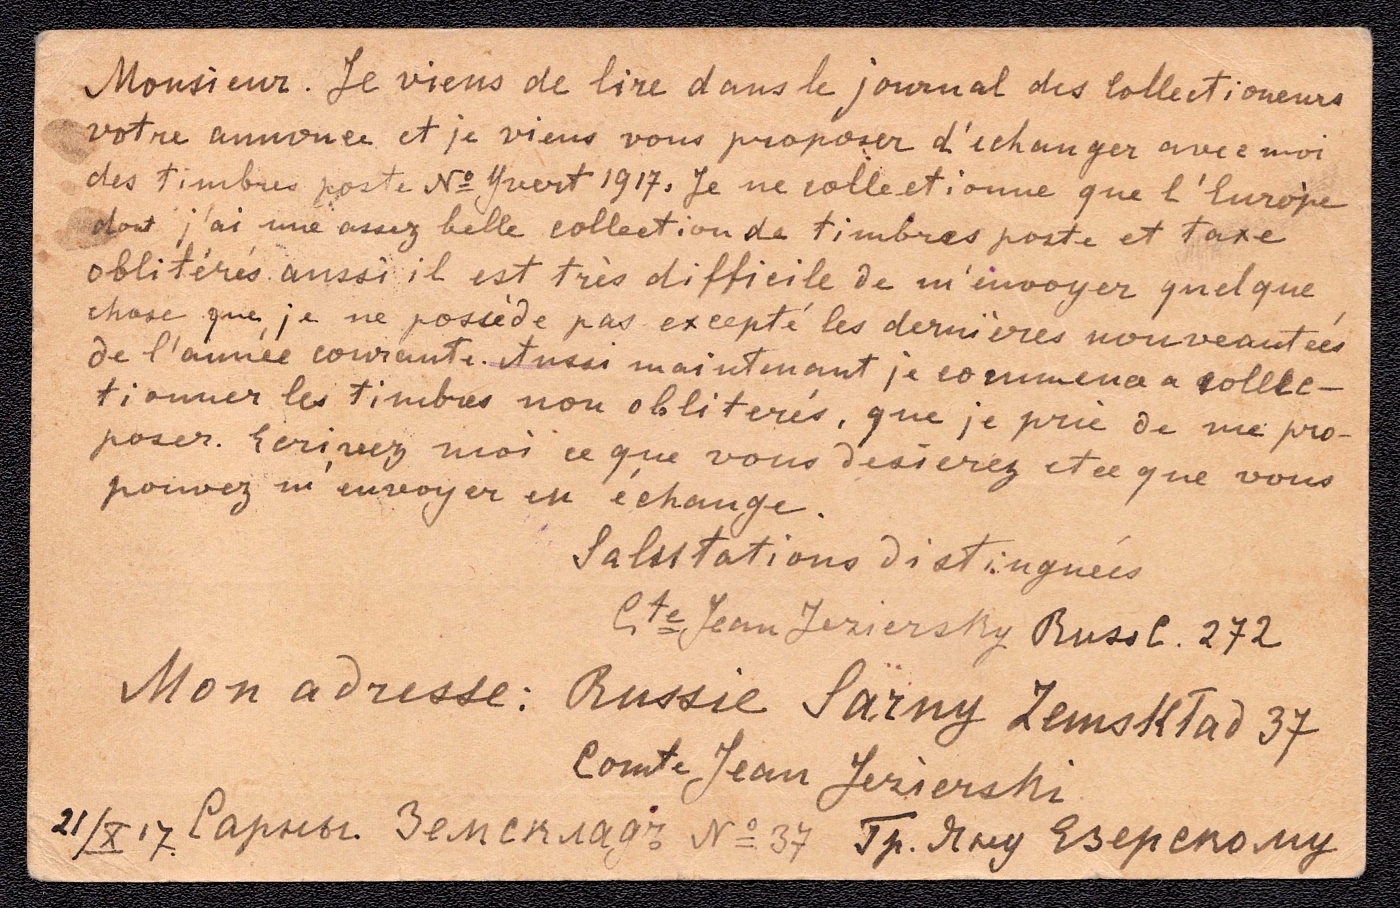 Monsieur. Je viens de lire dans le journal des Collectioneurs
votre annonce et je viens vous proposer d'échanger avec moi
des timbres poste No Yvert 1917. Je ne collectionne que l'Europe
dont j'ai une assez belle collection de timbres poste et taxe
oblitérés aussi il est très difficile de m'envoyer quelque
chose que je ne possède pas excepté les dernières nouveautées
de l'année courante. Aussi maintenant je commence a collec-
tionner les timbres non obliterés, que je prie de me pro-
poser. Ecrivez moi ce que vous desierez et ce que vous
pouvez m'envoyer en échange.
Salutations distinguées
Cte Jean Jeziersky Russ C. 272
Mon adresse: Russie Sarny Zemskład 37
Comte Jean Jezierski
21/X 17. Сарны. Земскладъ No 37 Гр. Яну Езерскому